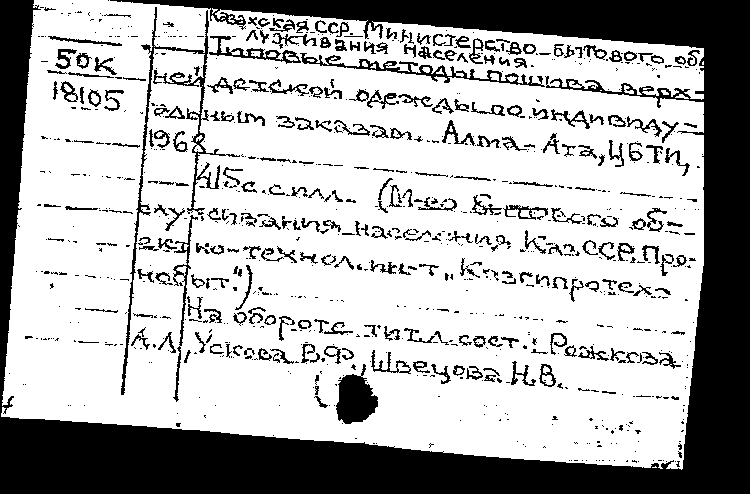 Казахская ССР. Министерство бытового обс
луживания населения.
50К
18105
Типовые методы пошива верх-
ней детской одежды по индивиду-
альным заказам. Алма-Ата, ЦБТИ,
1968.
415 с. с илл. (М-во бытового об-
служивания населения КазССР. Про-
ектно-технол. ин-т „Казгипротех-
нобыт.").
На обороте тит. л. сост.: Рожкова
А.Л., Ускова В.Ф., Швецова Н.В.